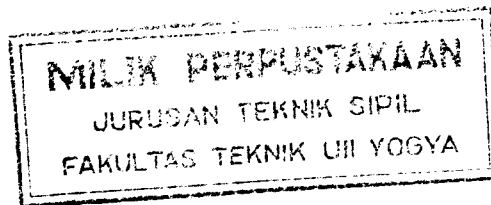 MILIK PERPUSTAKAAN
JURUSAN TEKNIK SIPIL
FAKULTAS TEKNIK UII YOGYA